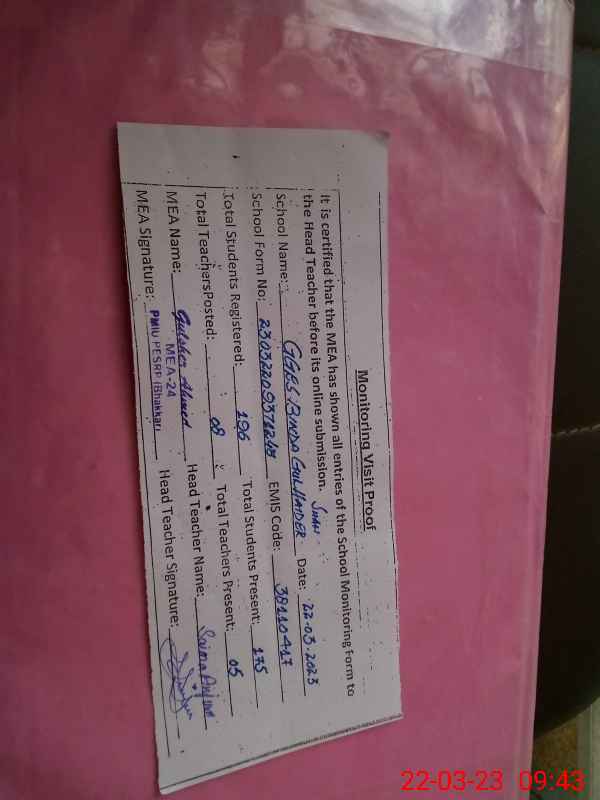 Monitoring Visit Proof
It is certified that the MEA has shown all entries of the School Monitoring Form to
the Head Teacher before its online submission. SHAH
School Name: GGES BINDA GULHAIDER Date: 22-03-2023
School Form No: EMIS Code: 38110417
Total Students Registered: 196 Total Students Present: 175
Total TeachersPosted: 08 Total Teachers Present: 05
MEA Name: Gulsher Ahmed Head Teacher Name: Saima Anjum
MEA-24
MEA Signature: PMIU PESRP (Bhakkar) Head Teacher Signature:
22-03-23 09:43